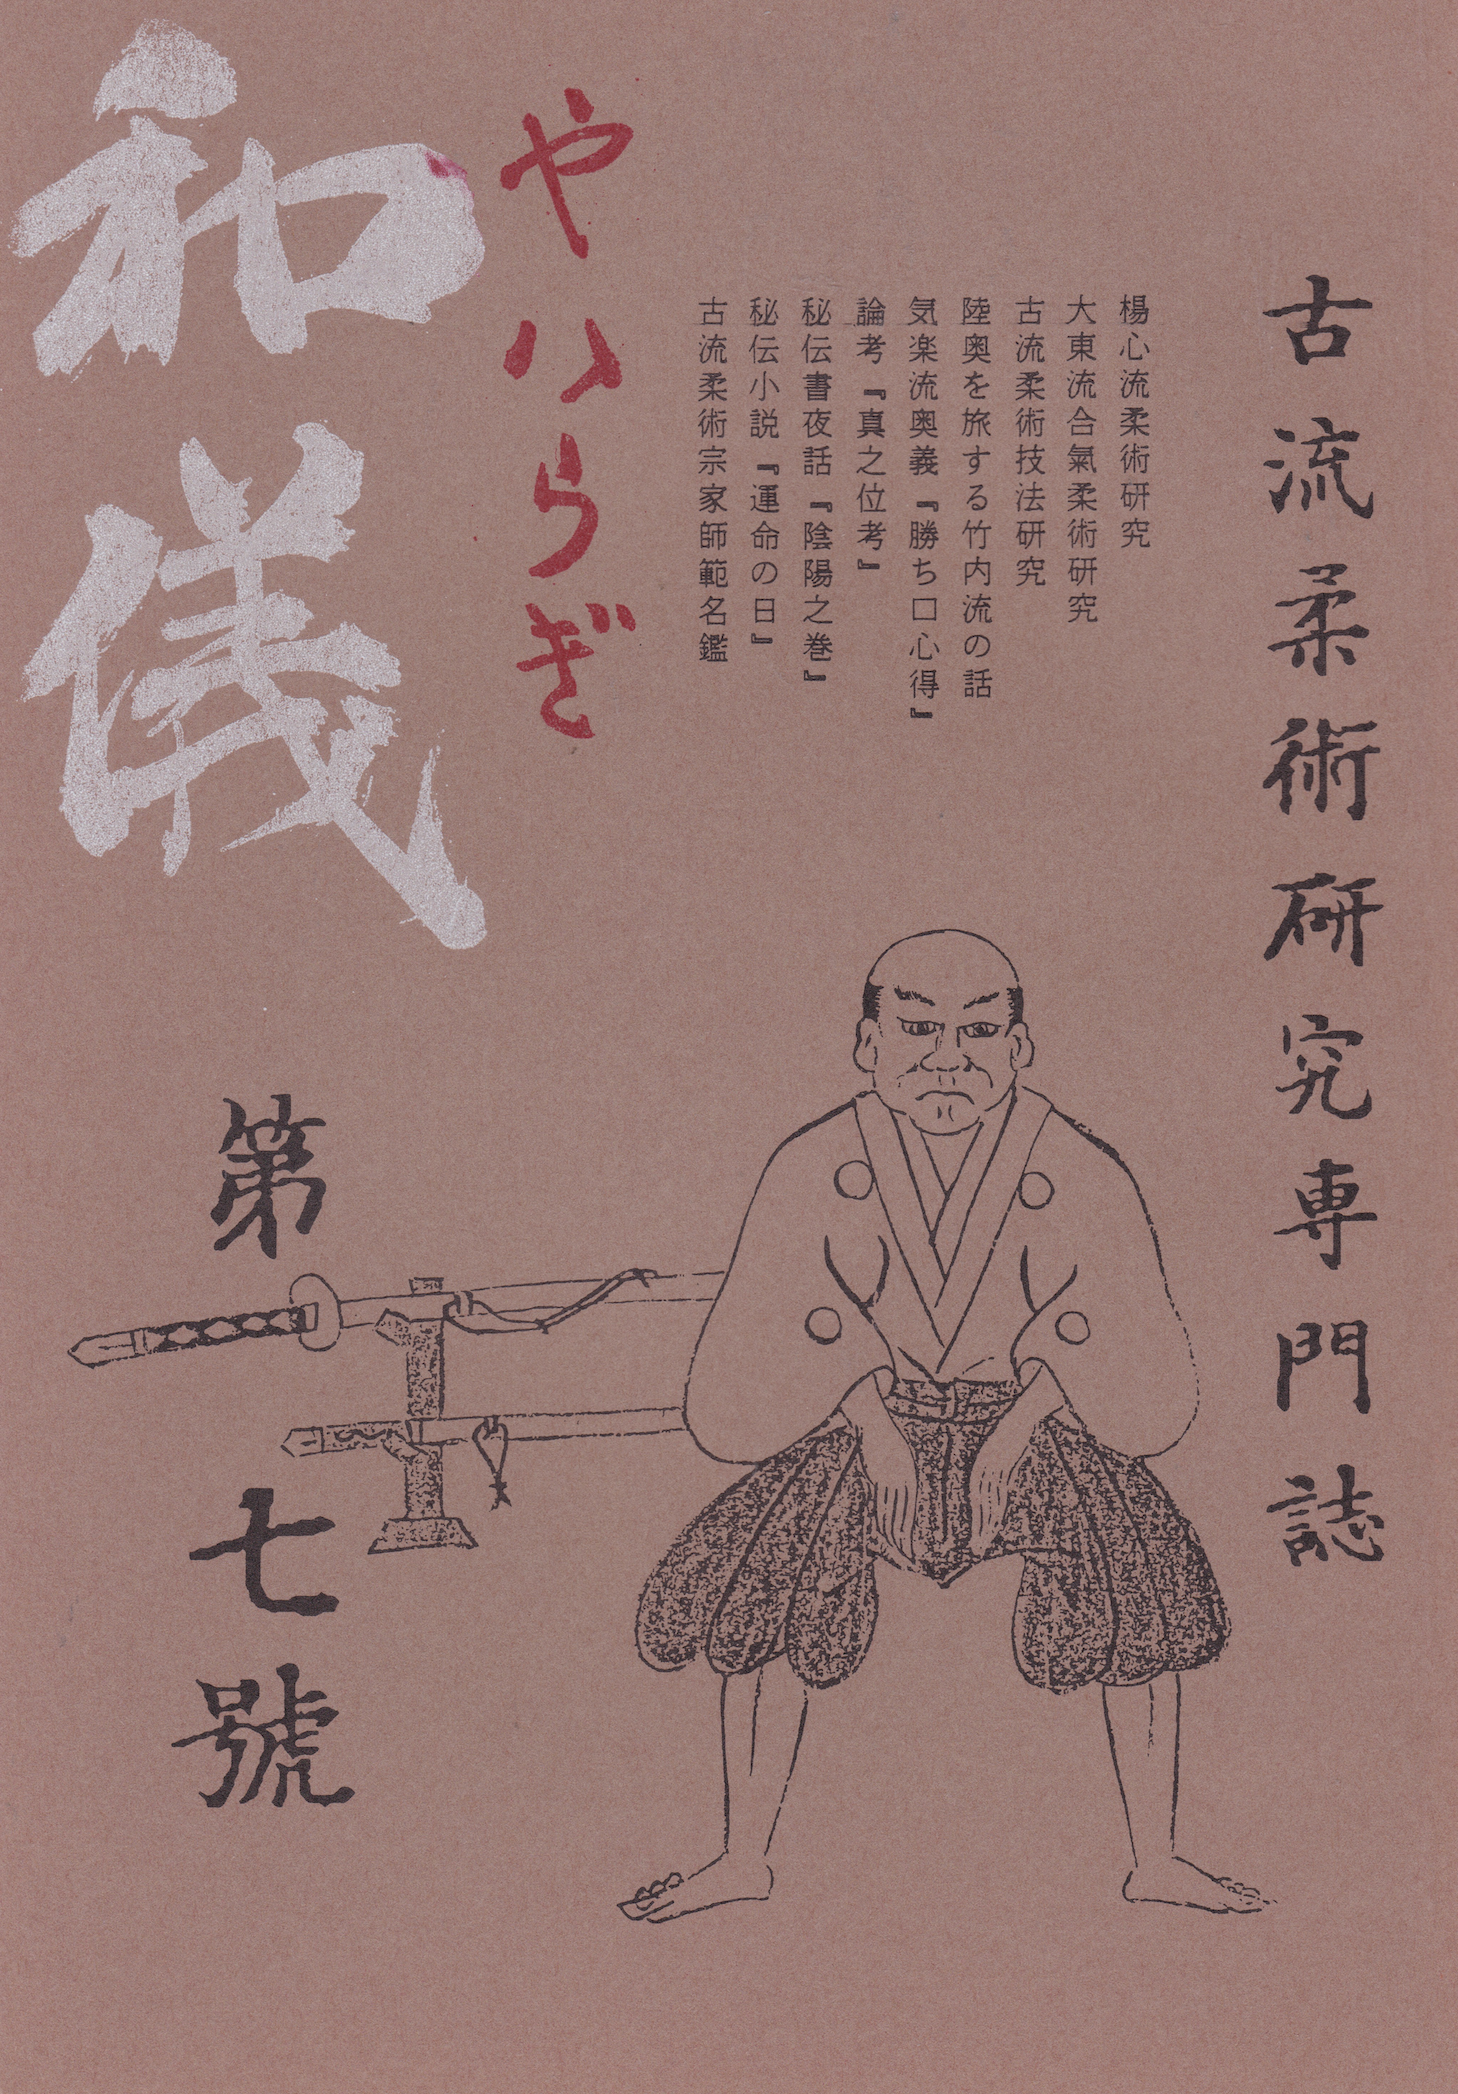 古流柔術研究専門誌
楊心流柔術研究
大東流合氣柔術研究
古流柔術技法研究
陸奥を旅する竹内流の話
気楽流奥義『勝ち口心得』
論考『真之位考』
秘伝書夜話『陰陽之巻』
秘伝小説『運命の日』
古流柔術宗家師範名鑑
やハらぎ
和儀
第七號